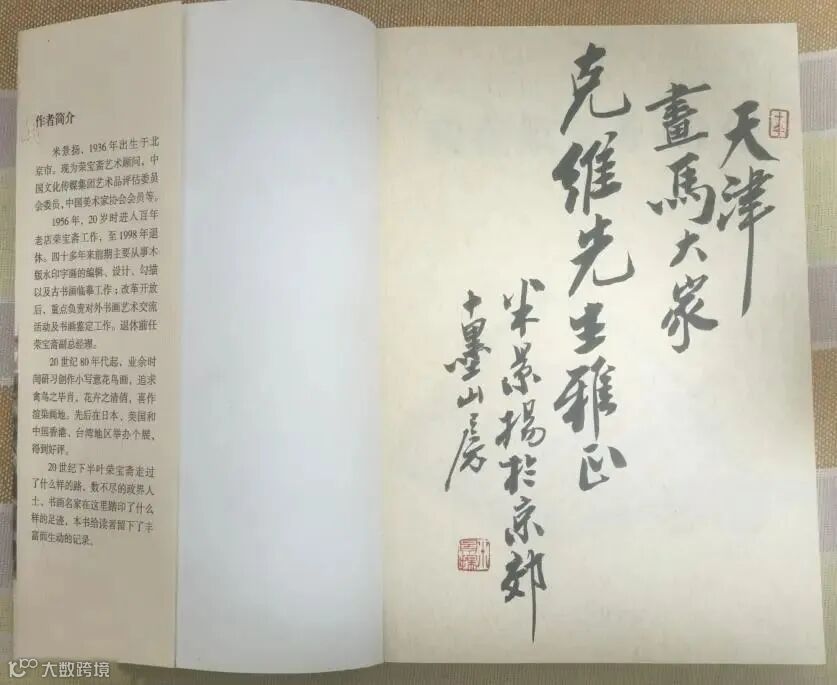 作者简介
米景扬、1936年出生于北
京市。现为荣宝斋艺术顾问，中
国文化传媒集团艺术品评估委员
会委员，中国美术家协会会员等。
1956年，20岁时进入百年
老店荣宝斋工作，至1998年退
休。四十多年来前期主要从事木
版水印字画的编辑、设计、勾描
以及古书画临摹工作；改革开放
后、重点负责对外书画艺术交流
活动及书画鉴定工作。退休前任
荣宝斋副总经理。
20世纪80年代起，业余时
间研习创作小写意花鸟画，追求
禽鸟之毕肖，花卉之清俏，喜作
渲染画地。先后在日本、美国和
中国香港、台湾地区举办个展，
得到好评。
20世纪下半叶荣宝斋走过
了什么样的路，数不尽的政界人
士、书画名家在这里踏印了什么
样的足迹，本书给读者留下了丰
富而生动的记录。
天津
畫馬大家
克維先生雅正
米景揚於京郊
十墨山房
大数跨境